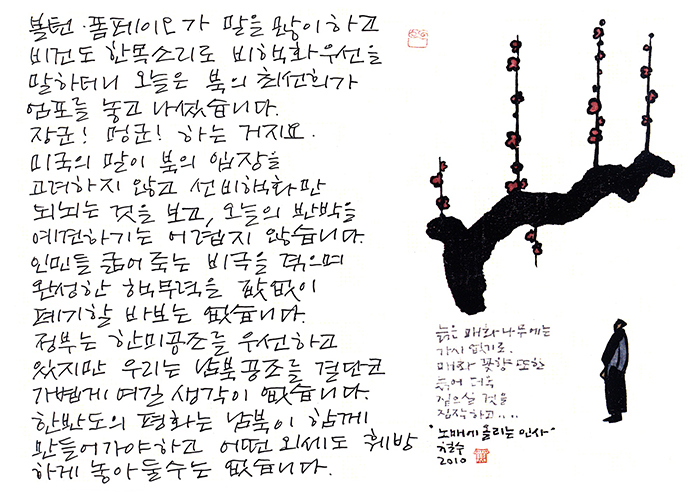 볼턴·폼페이오가 말을 많이 하고
비건도 한목소리로 비핵화우선을
말하더니 오늘은 북의 최선희가
엄포를 놓고 나섰습니다.
장군! 멍군! 하는 거지요.
미국의 말이 북의 입장을
고려하지 않고 선비핵화만
되뇌는 것을 보고, 오늘의 반박을
예견하기는 어렵지 않습니다.
인민들 굶어죽는 비극을 겪으며
완성한 핵무력을 값없이
폐기할 바보는 없습니다.
정부는 한미공조를 우선하고
있지만 우리는 남북공조를 결단코
가볍게 여길 생각이 없습니다.
한반도의 평화는 남북이 함께
만들어가야하고 어떤 외세도 훼방
하게 놓아둘수는 없습니다.
늙은 매화나무에는
가시 없기로.
매화 꽃향 또한
늙어 더욱
깊으실 것을
짐작하고....
"노매에 올리는 인사"
철수
2010